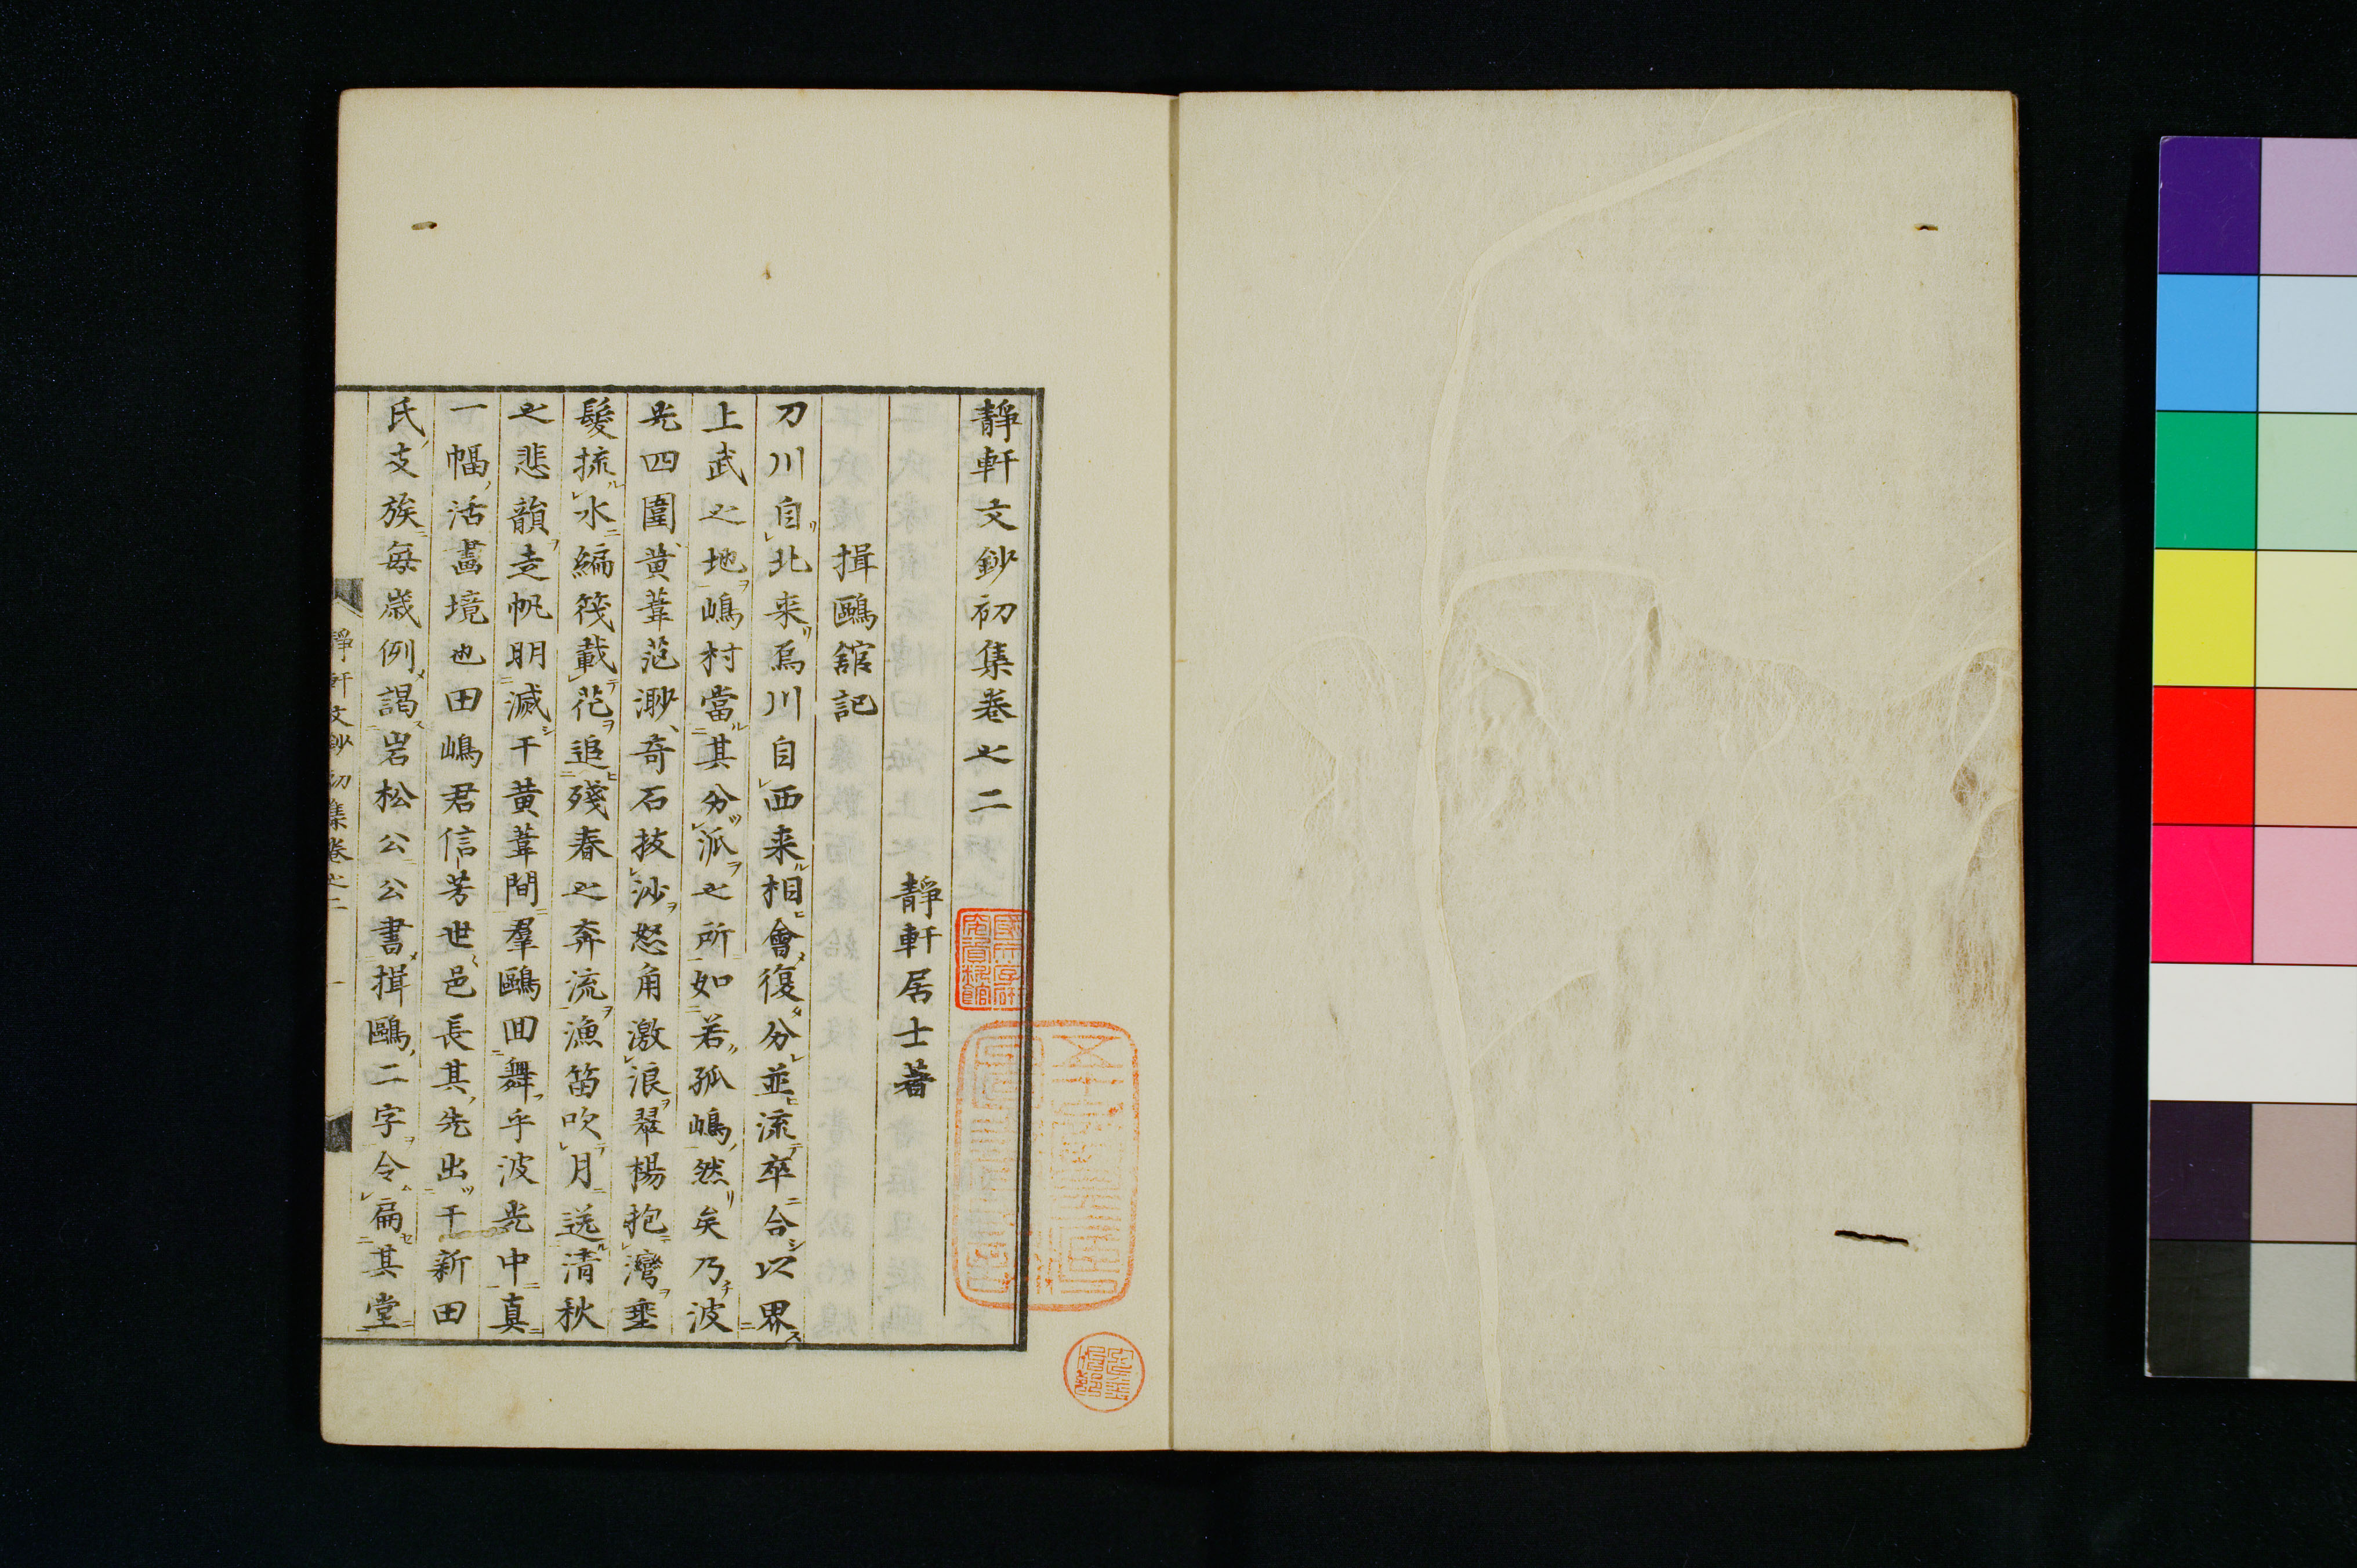 靜軒文鈔初集卷之二
靜軒居士著
揖鷗舘記
刀川自北来烏川自西来相會復分並流卒合以界
上武之地嶋村當其分派之所如若孤嶋然矣乃波
光四圍黄葦茫渺奇石抜沙怒角激浪翠楊抱灣垂
髪梳水編筏載花追殘春之奔流漁笛吹月送清秋
之悲韻走帆明滅于黄葦間羣鷗回舞乎波光中真
一幅活畵境也田嶋君信芳世邑長其先出于新田
氏支族毎歳例謁岩松公公書揖鷗二字令扁其堂
靜軒文鈔初集卷之二 一